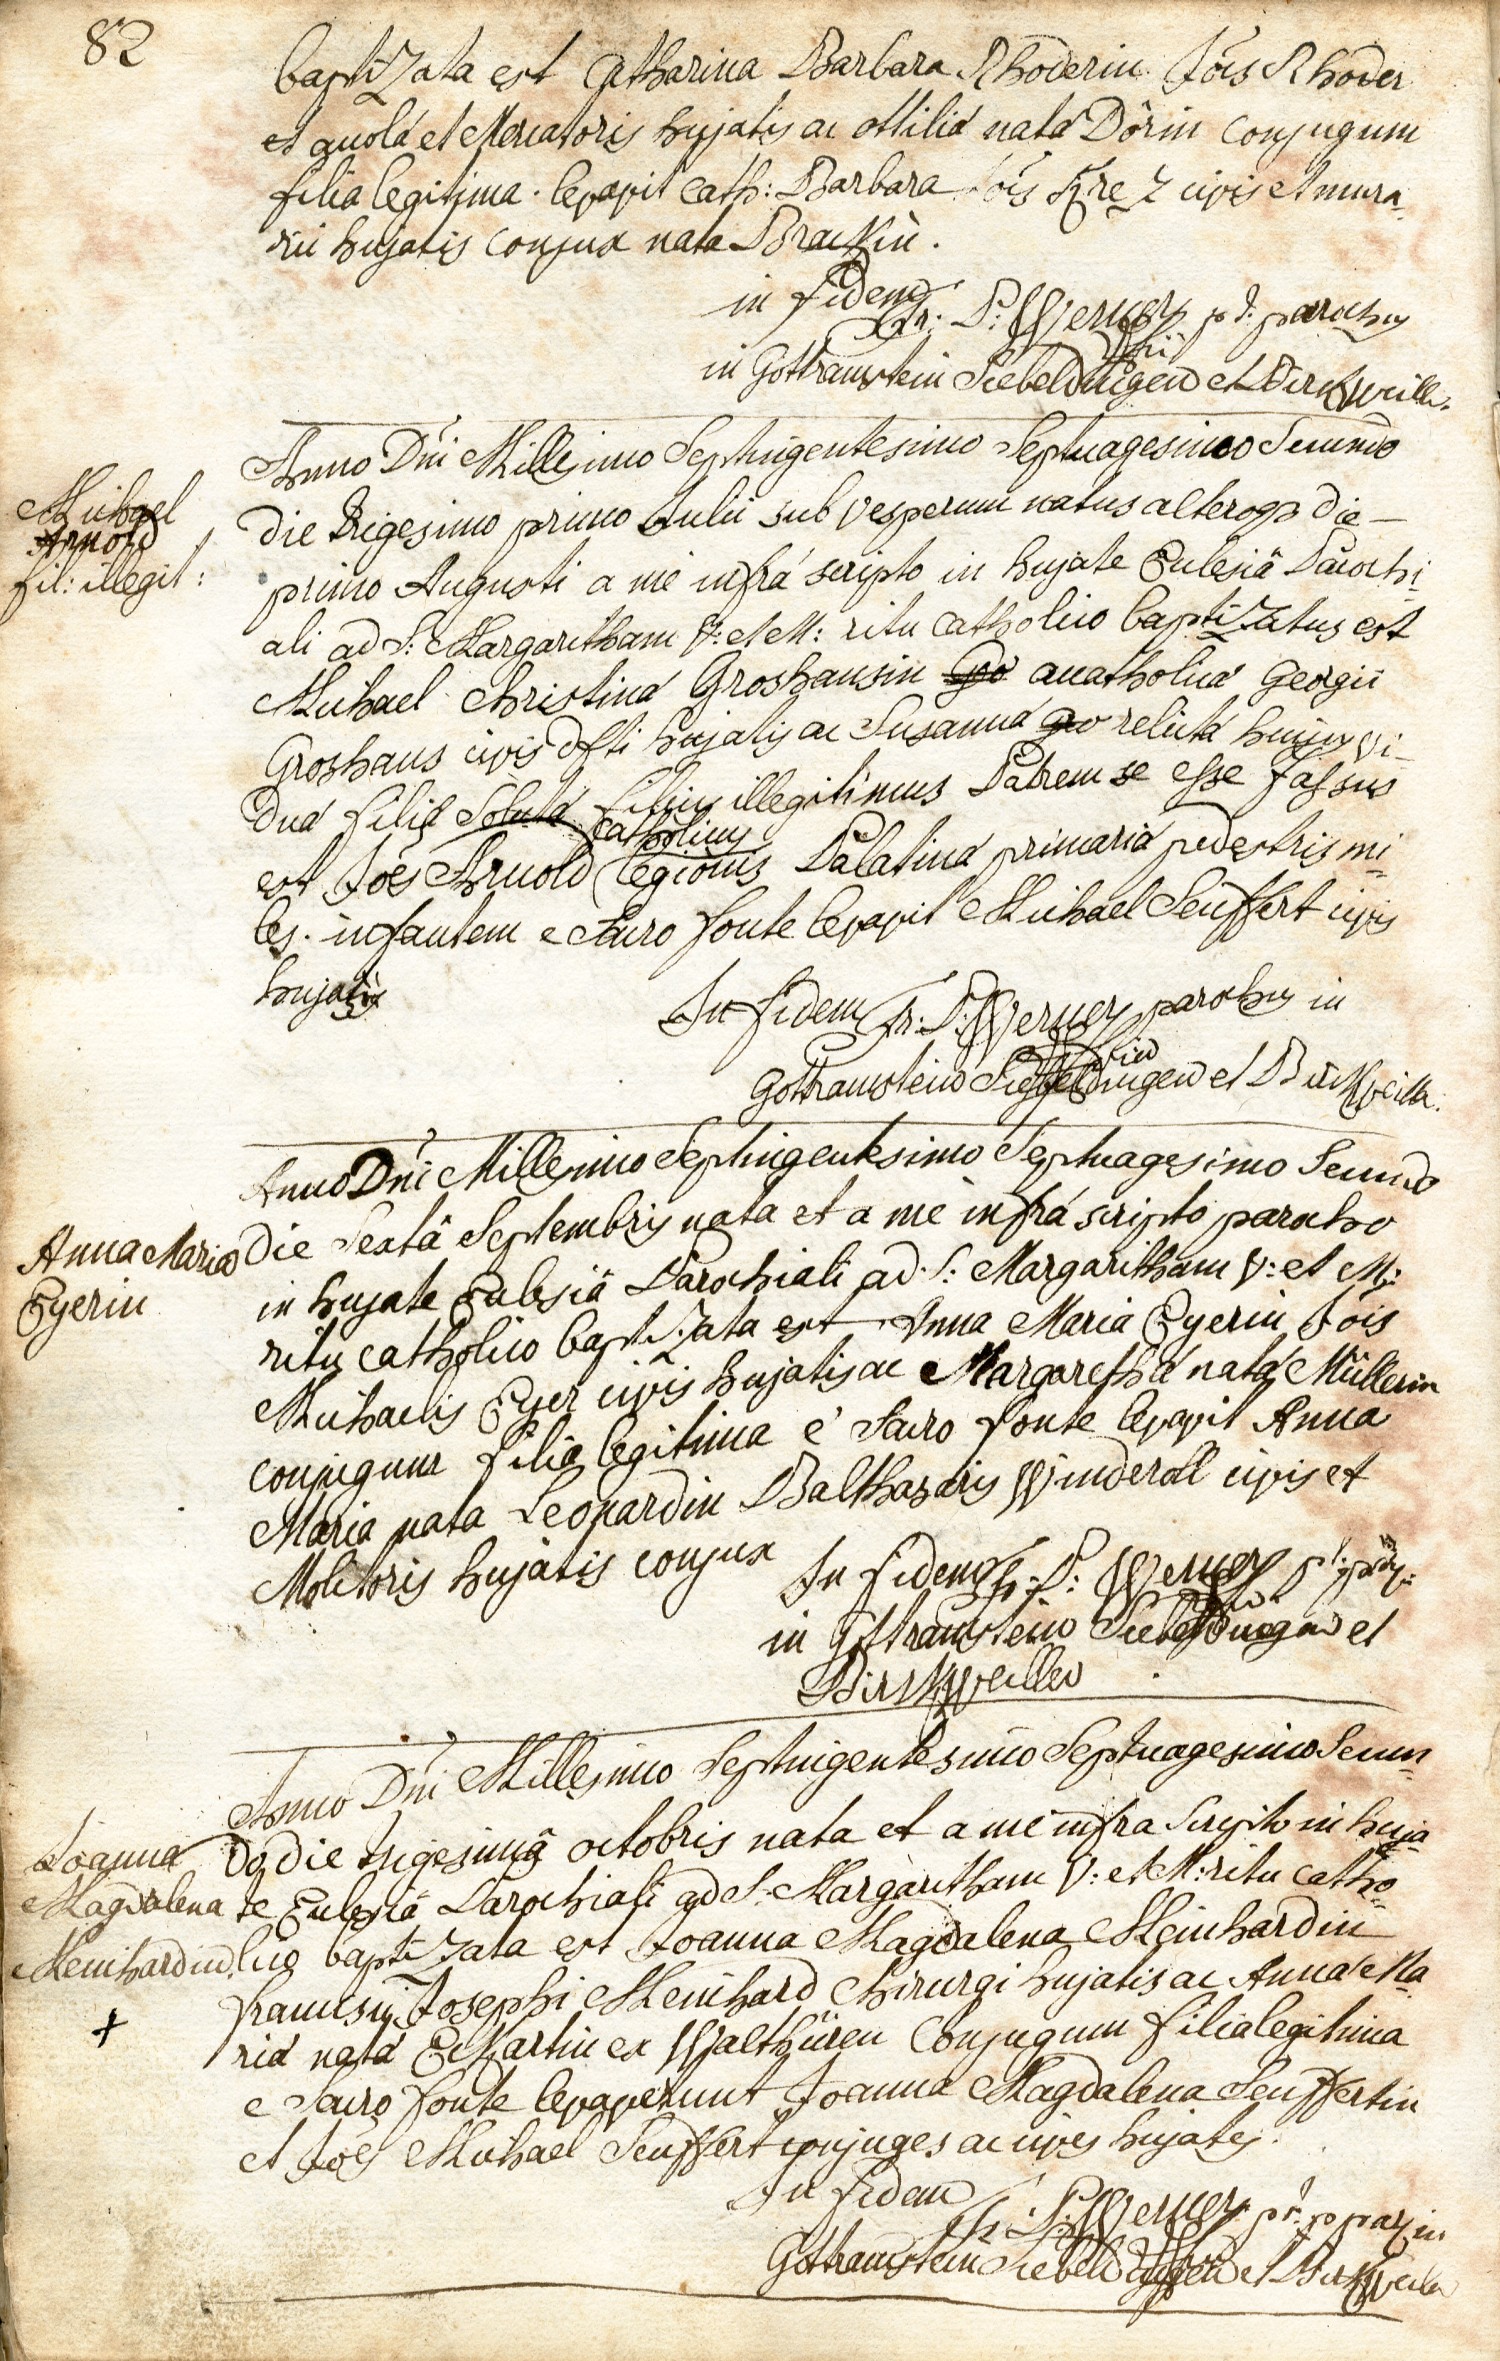 82
baptizata est Catharina Barbara Rhoderin Jois Rhoder
et Mercatoris hujatis ac ottiliâ natâ Dörin conjugum
filia legitima. levavit Cath: Barbara Jois Krez civis et mura-
rii hujatis conjux nata Brackin.
in fidem Fr: P: Werner p t: parochus
in Gottramstein Siebeldingen et Birckweiller.
Anno Dni Millesimo Septingentesimo Septuagesimo Secundo
Michael
Arnold
fil: illegit:
die trigesimo primo Julii sub vesperum natus alteroq3 die
primo Augusti a me infrá scripto in hujate Ecclesiâ Parochi-
ali ad S: Margaritham V: et M: ritu Catholico baptizatus est
Michael Christinâ Groshausin acatholicâ Georgii
Groshaus civis dfti hujatis ac Susannâ relictâ hujus vi-
duâ filiâ Solutâ filius illegitimus Patrem se esse fassus
est Joes Arnold catholicus legionis Palatinâ primariâ pedestris mi-
les. infantem e Sacro fonte levavit Michael Seuffert civis
hujatis
In fidem Fr: P: Werner parochus in
Gottramstein Siebeldingen et Birckweiller.
Anno Dni Millesimo Septingentesimo Septuagesimo Secundo
Anna Maria
Eyerin
die Sextâ Septembris nata et a me infrá scripto parocho
in hujate Ecclesiâ Parochiali ad S: Margaritham V: et M:
ritu catholico baptizata est Anna Maria Eyerin Jois
Michaelis Eyer civis hujatis ac Margarethâ natâ Müllerin
conjugum filia legitima é Sacro fonte levavit Anna
Maria nata Leonardin Balthasaris Winderoll civis et
Molitoris hujatis conjux
In fidem Fr: P: Werner p t:
in Gottramstein Siebeldingen et
Birckweiller
Anno Dni Millesimo Septingentesimo Septuagesimo Secun-
Joanna
Magdalena
Meinhardin.
+
do die trigesimâ octobris nata et a me infra Scripto in huja-
te Ecclesiâ Parochiali ad S: Margaritham V: et M: ritu catho-
lico baptizata est Joanna Magdalena Meinhardin
francisci Josephi Meinhard chirurgi hujatis ac Annâ Ma-
riâ natâ Eckartin ex Walthüren Conjugum filia legitima
e Sacro fonte levaverunt Joanna Magdalena Seuffertin
et Joes Michael Seuffert conjuges ac cives hujates.
In fidem
Fr: P: Werner p t: par in
Gottramstein Siebeldingen et Birckweiler